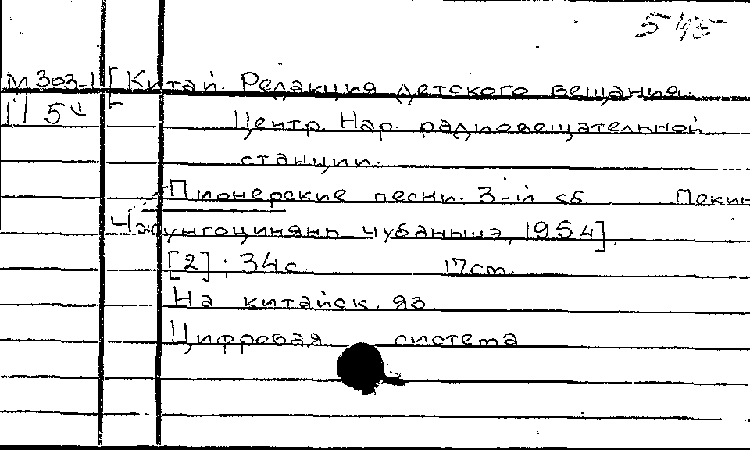 545
М 303-1 [Китай. Редакция детского вещания
П 54
Центр. Нар. радиовещательной
станции.
Пионерские песни. 3-й сб Пекин
Чжунгоциннянь чубаньшэ, 1954].
[2]; 34с 17см.
На китайск. яз
Цифровая система